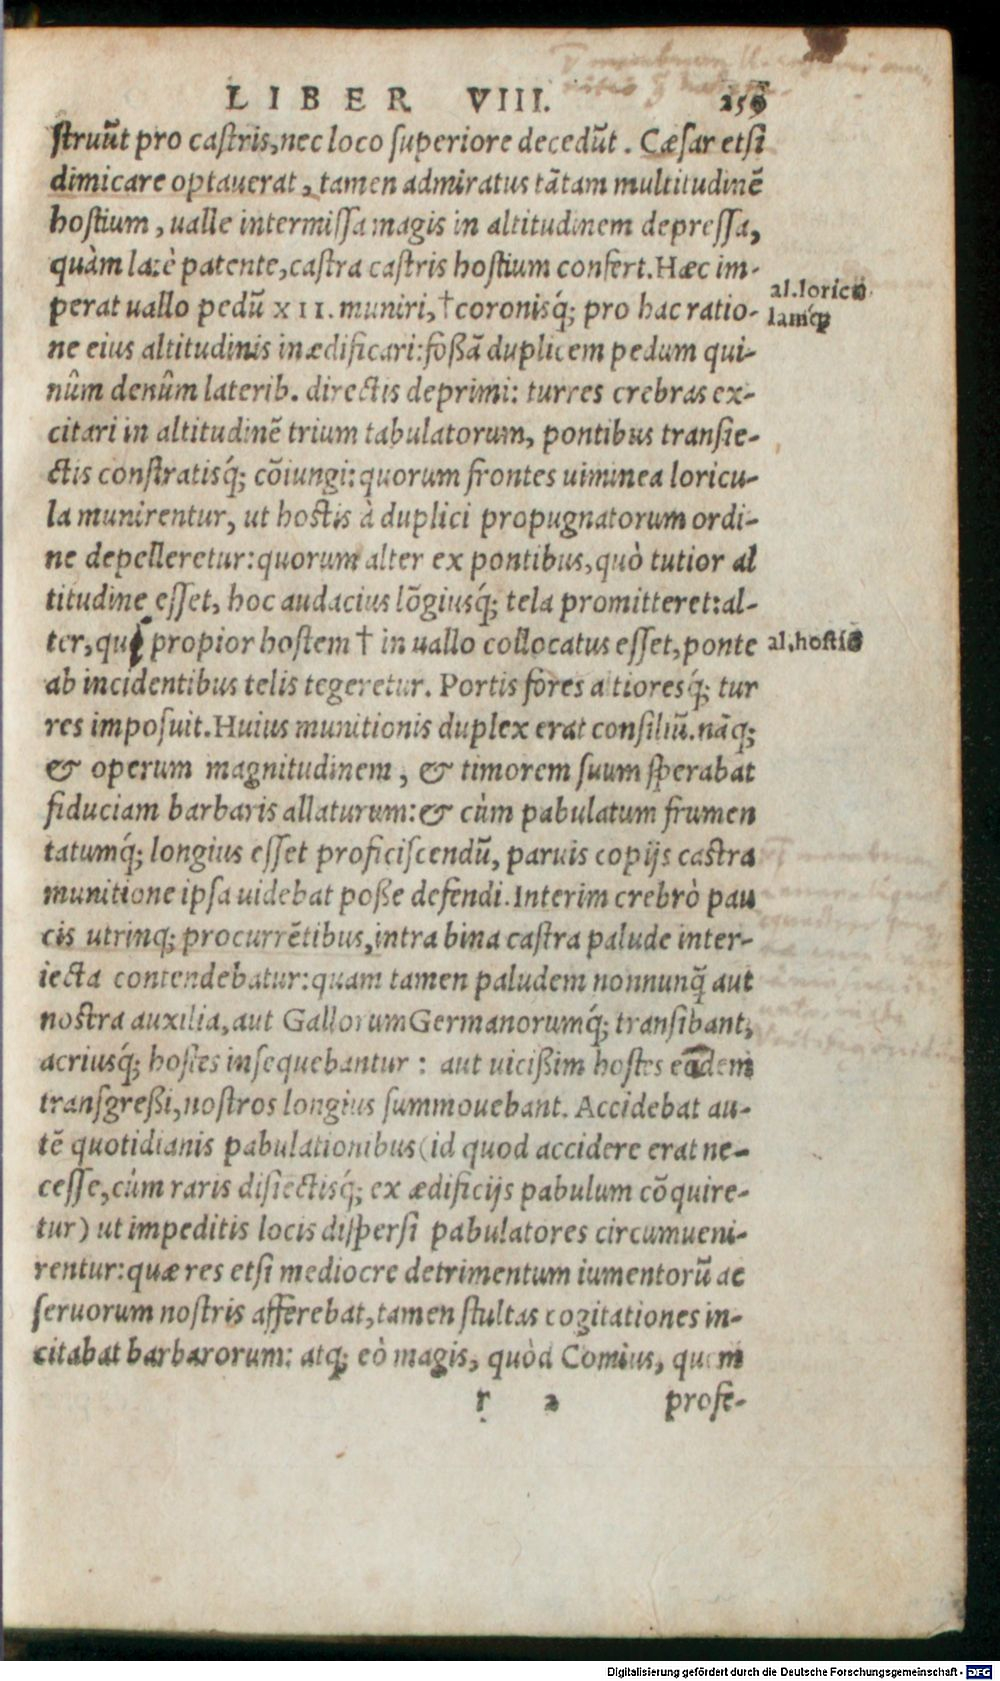 LIBER VIII. 259
struūt pro castris, nec loco superiore decedūt. Cæsar etsi
dimicare optauerat, tamen admiratus tātam multitudinē
hostium, ualle intermissa magis in altitudinem depressa,
quàm latè patente, castra castris hostium confert. Hæc im-
perat uallo pedū XII. muniri, † coronisq́; pro hac ratio-
al. loricu
lamq́;
ne eius altitudinis inædificari: foßā duplicem pedum qui-
nûm denûm laterib. directis deprimi: turres crebras ex-
citari in altitudinē trium tabulatorum, pontibus transie-
ctis constratisq́; cōiungi: quorum frontes uiminea loricu-
la munirentur, ut hostis à duplici propugnatorum ordi-
ne depelleretur: quorum alter ex pontibus, quò tutior al
titudine esset, hoc audacius lōgiusq́; tela promitteret: al-
ter, qui propior hostem † in uallo collocatus esset, ponte
al. hosti
ab incidentibus telis tegeretur. Portis fores altioresq́; tur
res imposuit. Huius munitionis duplex erat consiliū. nāq;
& operum magnitudinem, & timorem suum sperabat
fiduciam barbaris allaturum: & cùm pabulatum frumen
tatumq́; longius esset proficiscendū, paruis copijs castra
munitione ipsa uidebat poße defendi. Interim crebrò pau
cis utrinq; procurrētibus, intra bina castra palude inter-
iecta contendebatur: quam tamen paludem nonnunq̃ aut
nostra auxilia, aut Gallorum Germanorumq́; transibant,
acriusq́; hostes insequebantur: aut uicißim hostes eadem
transgreßi, nostros longius summouebant. Accidebat au-
tē quotidianis pabulationibus (id quod accidere erat ne-
cesse, cùm raris disiectisq́; ex ædificijs pabulum cōquire-
tur) ut impeditis locis dispersi pabulatores circumueni-
rentur: quæ res etsi mediocre detrimentum iumentorū ac
seruorum nostris afferebat, tamen stultas cogitationes in-
citabat barbarorum: atq; eò magis, quòd Comius, quem
r 2 profe-
Digitalisierung gefördert durch die Deutsche Forschungsgemeinschaft - DFG